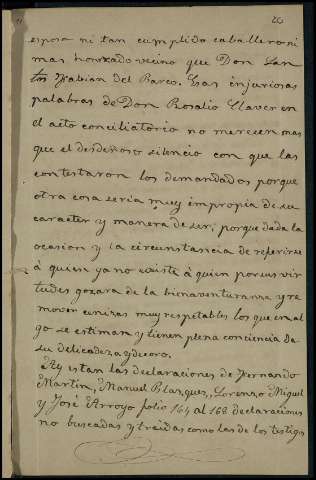 20
esposa ni tan cumplido caballero ni
mas honrado vecino que Don San-
tos Fabian del Barco. Esas injuriosas
palabras de Don Rosalio Claver en
el acto conciliatorio no merecen mas
que el desdeñoso silencio con que las
contestaron los demandados porque
otra cosa seria muy impropia de su
caracter y manera de ser, porque dada la
ocasion y la circunstancia de referirse
á quien ya no existe á quien por sus vir
tudes gozara de la bienaventuranza y re
mover cenizas muy respetables los que en al
go se estiman y tienen plena conciencia de
su delicadeza y decoro.
Ay estan las declaraciones de Fernando
Martin, Manuel Blazquez, Lorenzo Miguel
y José Arroyo folio 164 al 168 declaraciones
no buscadas y traidas como las de los testigos